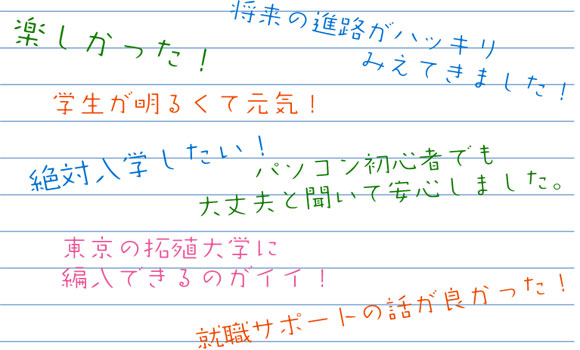 楽しかった！
将来の進路がハッキリ
みえてきました！
学生が明るくて元気！
絶対入学したい！
パソコン初心者でも
大丈夫と聞いて安心しました。
東京の拓殖大学に
編入できるのがイイ！
就職サポートの話が良かった！